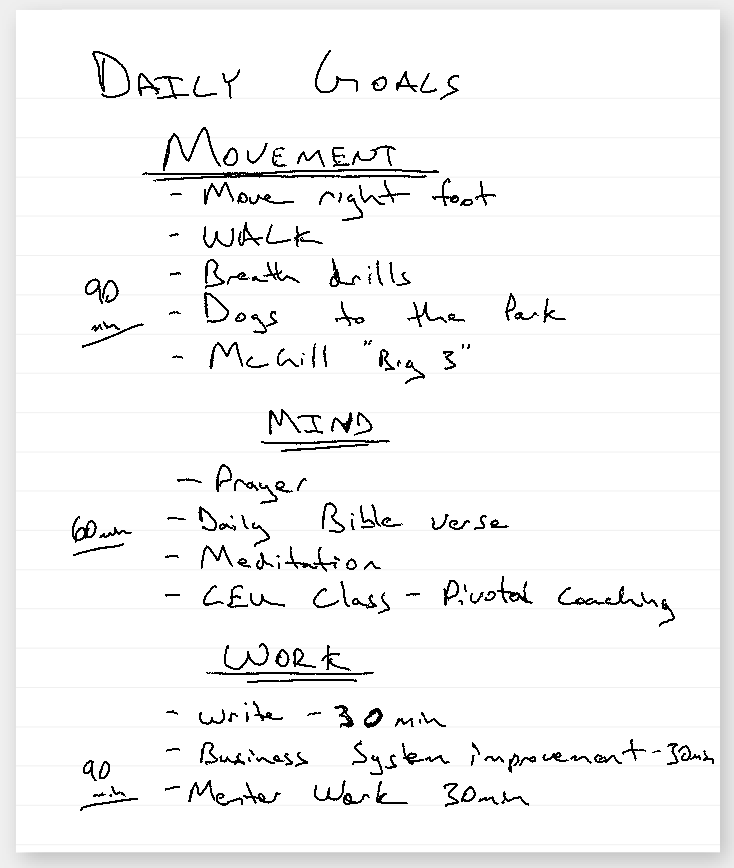 DAILY GOALS
MOVEMENT
- Move right foot
- WALK
- Breath drills
90 min
- Dogs to the Park
- McGill "Big 3"
MIND
- Prayer
60 min
- Daily Bible verse
- Meditation
- CEU Class - Pivotal Coaching
WORK
- Write - 30 min
- Business System improvement - 30min
90 min
- Mentor Work 30min